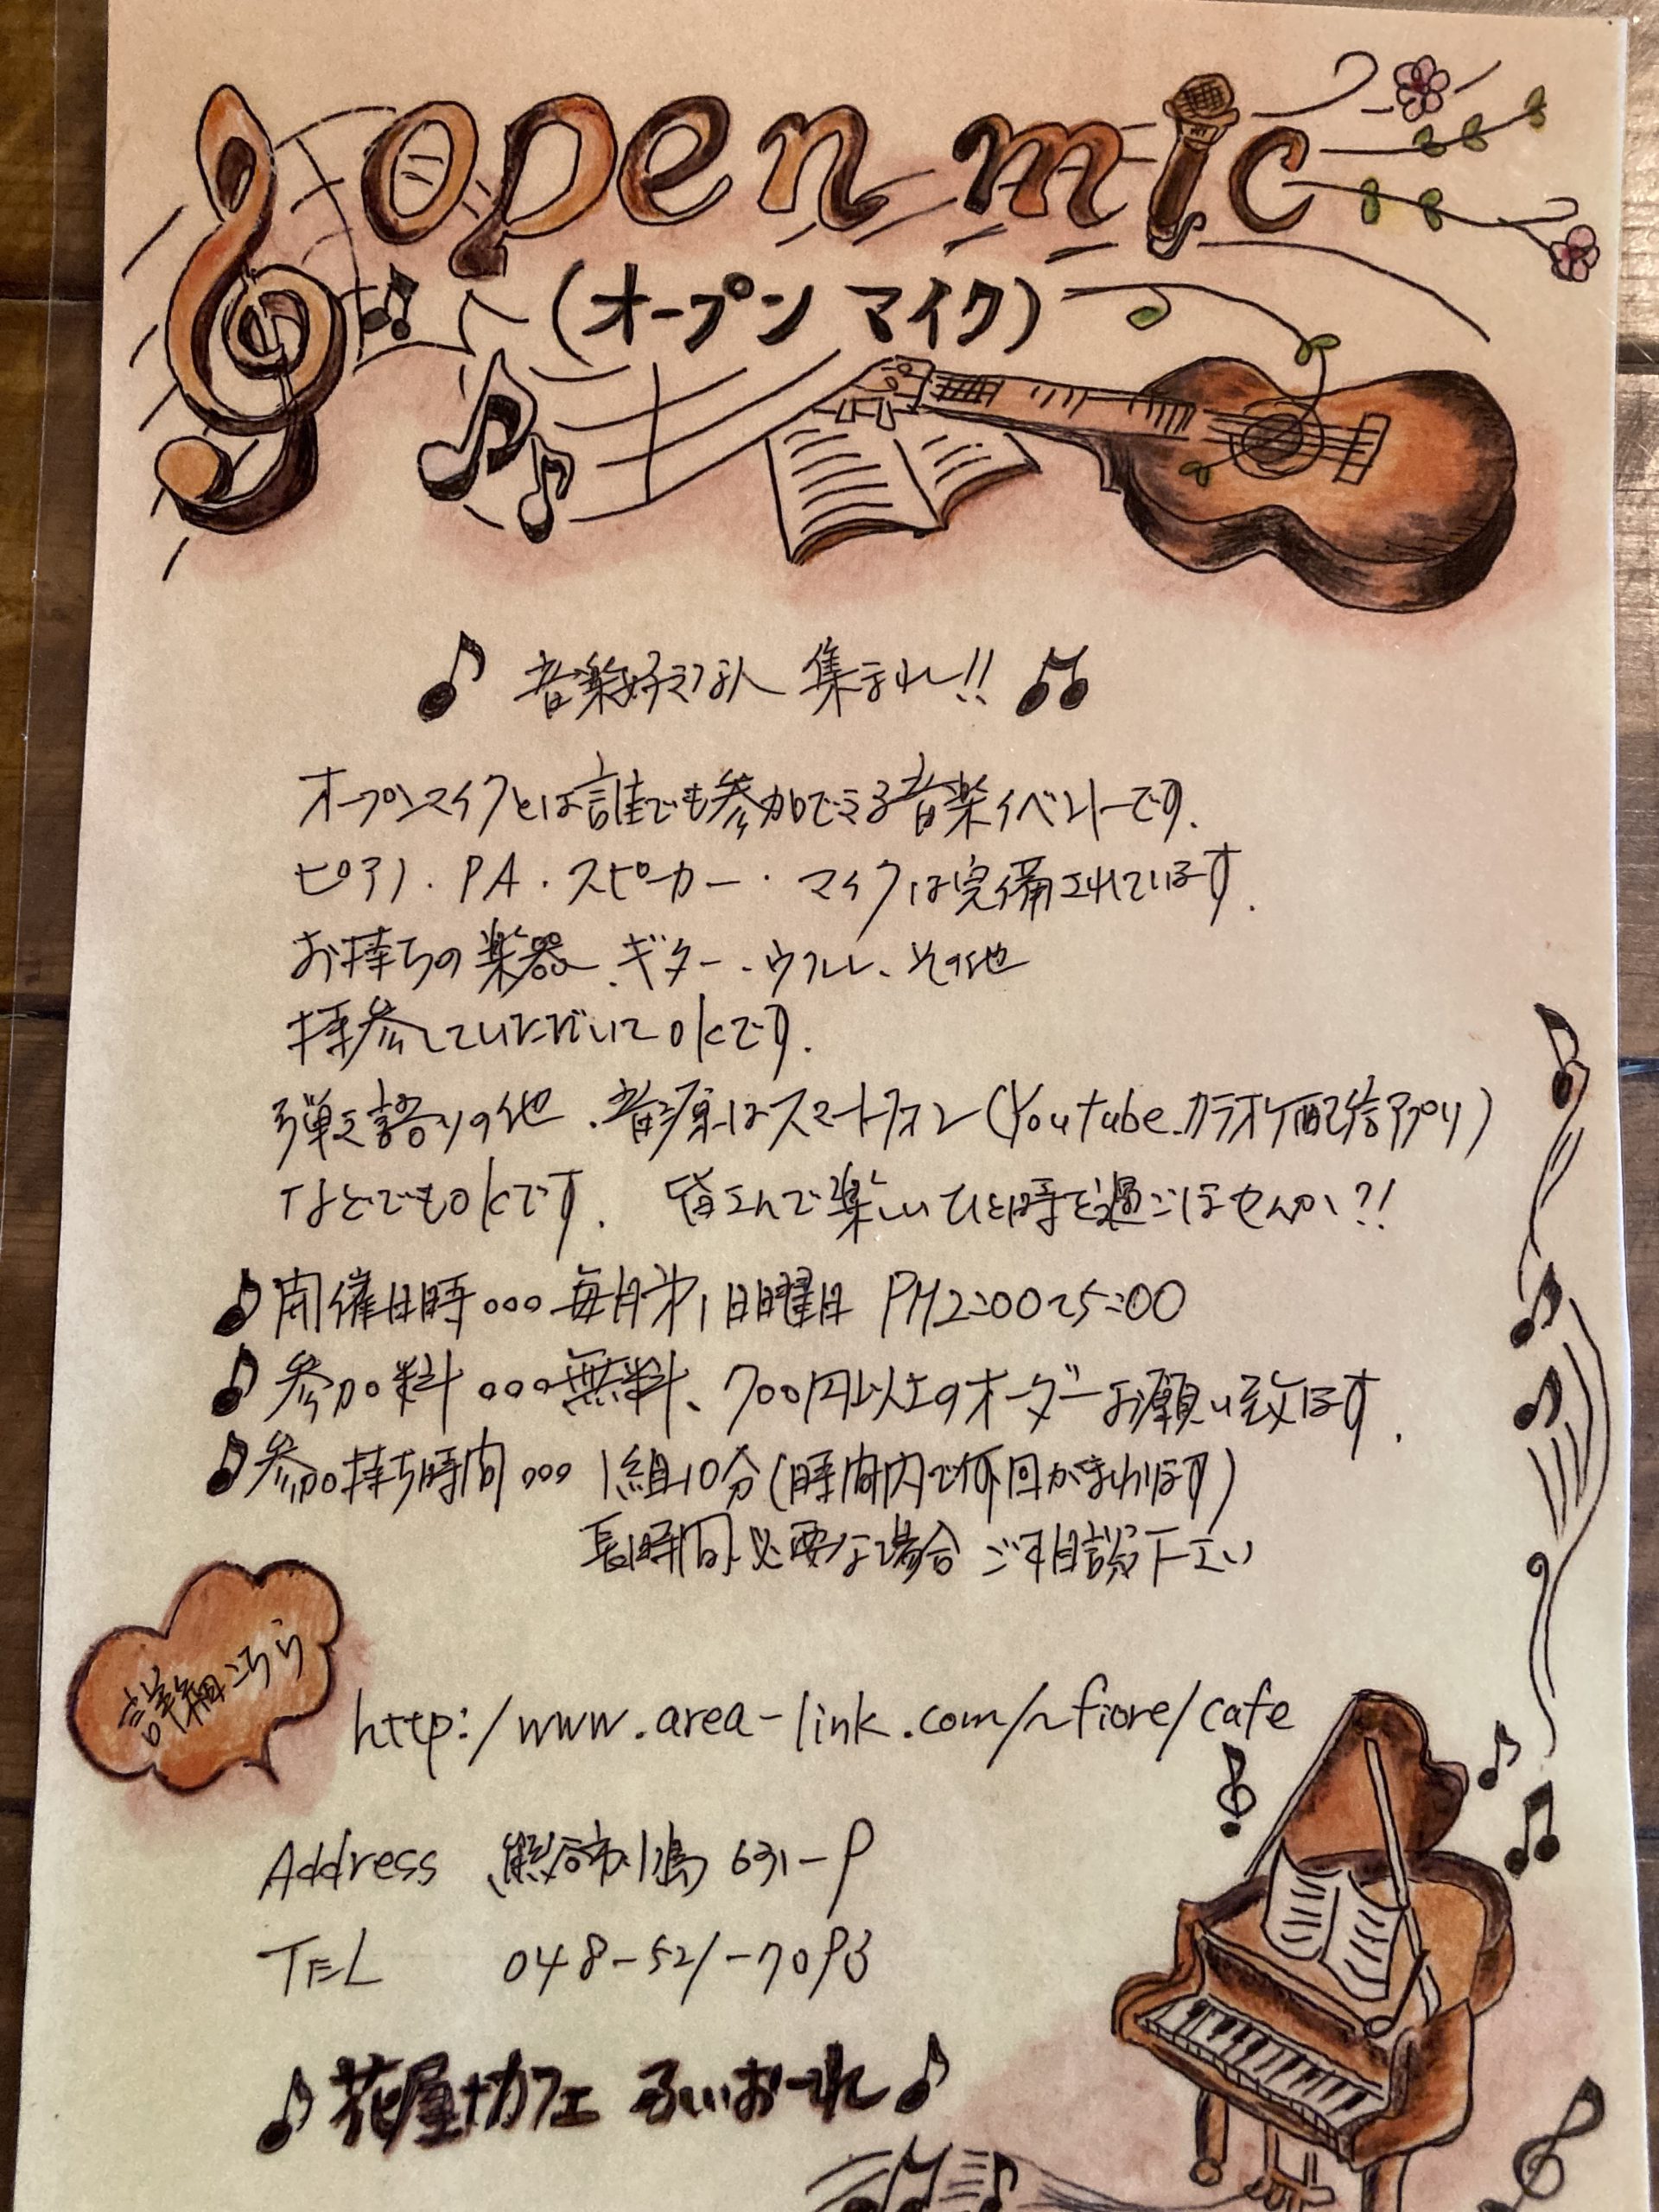 open mic
(オープン マイク)
音楽好きな人 集まれ!!
オープンマイクとは誰でも参加できる音楽イベントです.
ピアノ・PA・スピーカー・マイクは完備されています.
お持ちの楽器、ギター、ウクレレ、その他
持参していただいてOKです.
弾き語りの他、音源はスマートフォン(Youtube.カラオケ配信アプリ)
などでもOKです. 皆さんで楽しいひと時を過ごしませんか?!
開催日時…毎月第1日曜日 PM2:00〜5:00
参加料…無料、700円以上のオーダーお願い致します.
参加持ち時間…1組10分(時間内で何回かまわります)
長時間必要な場合 ご相談下さい
詳細こちら
http:/www.area-link.com/~fiore/cafe
Address 熊谷市小島 631-9
TEL 048-521-7093
花屋+カフェ ふぃおーれ